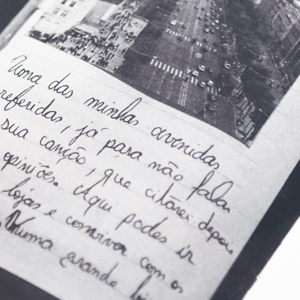 Uma das minhas avenidas
referidas, já para não falar
sua canção, que citarei depois
opiniões. Aqui podes ir
lojas e conviver com os
Numa grande